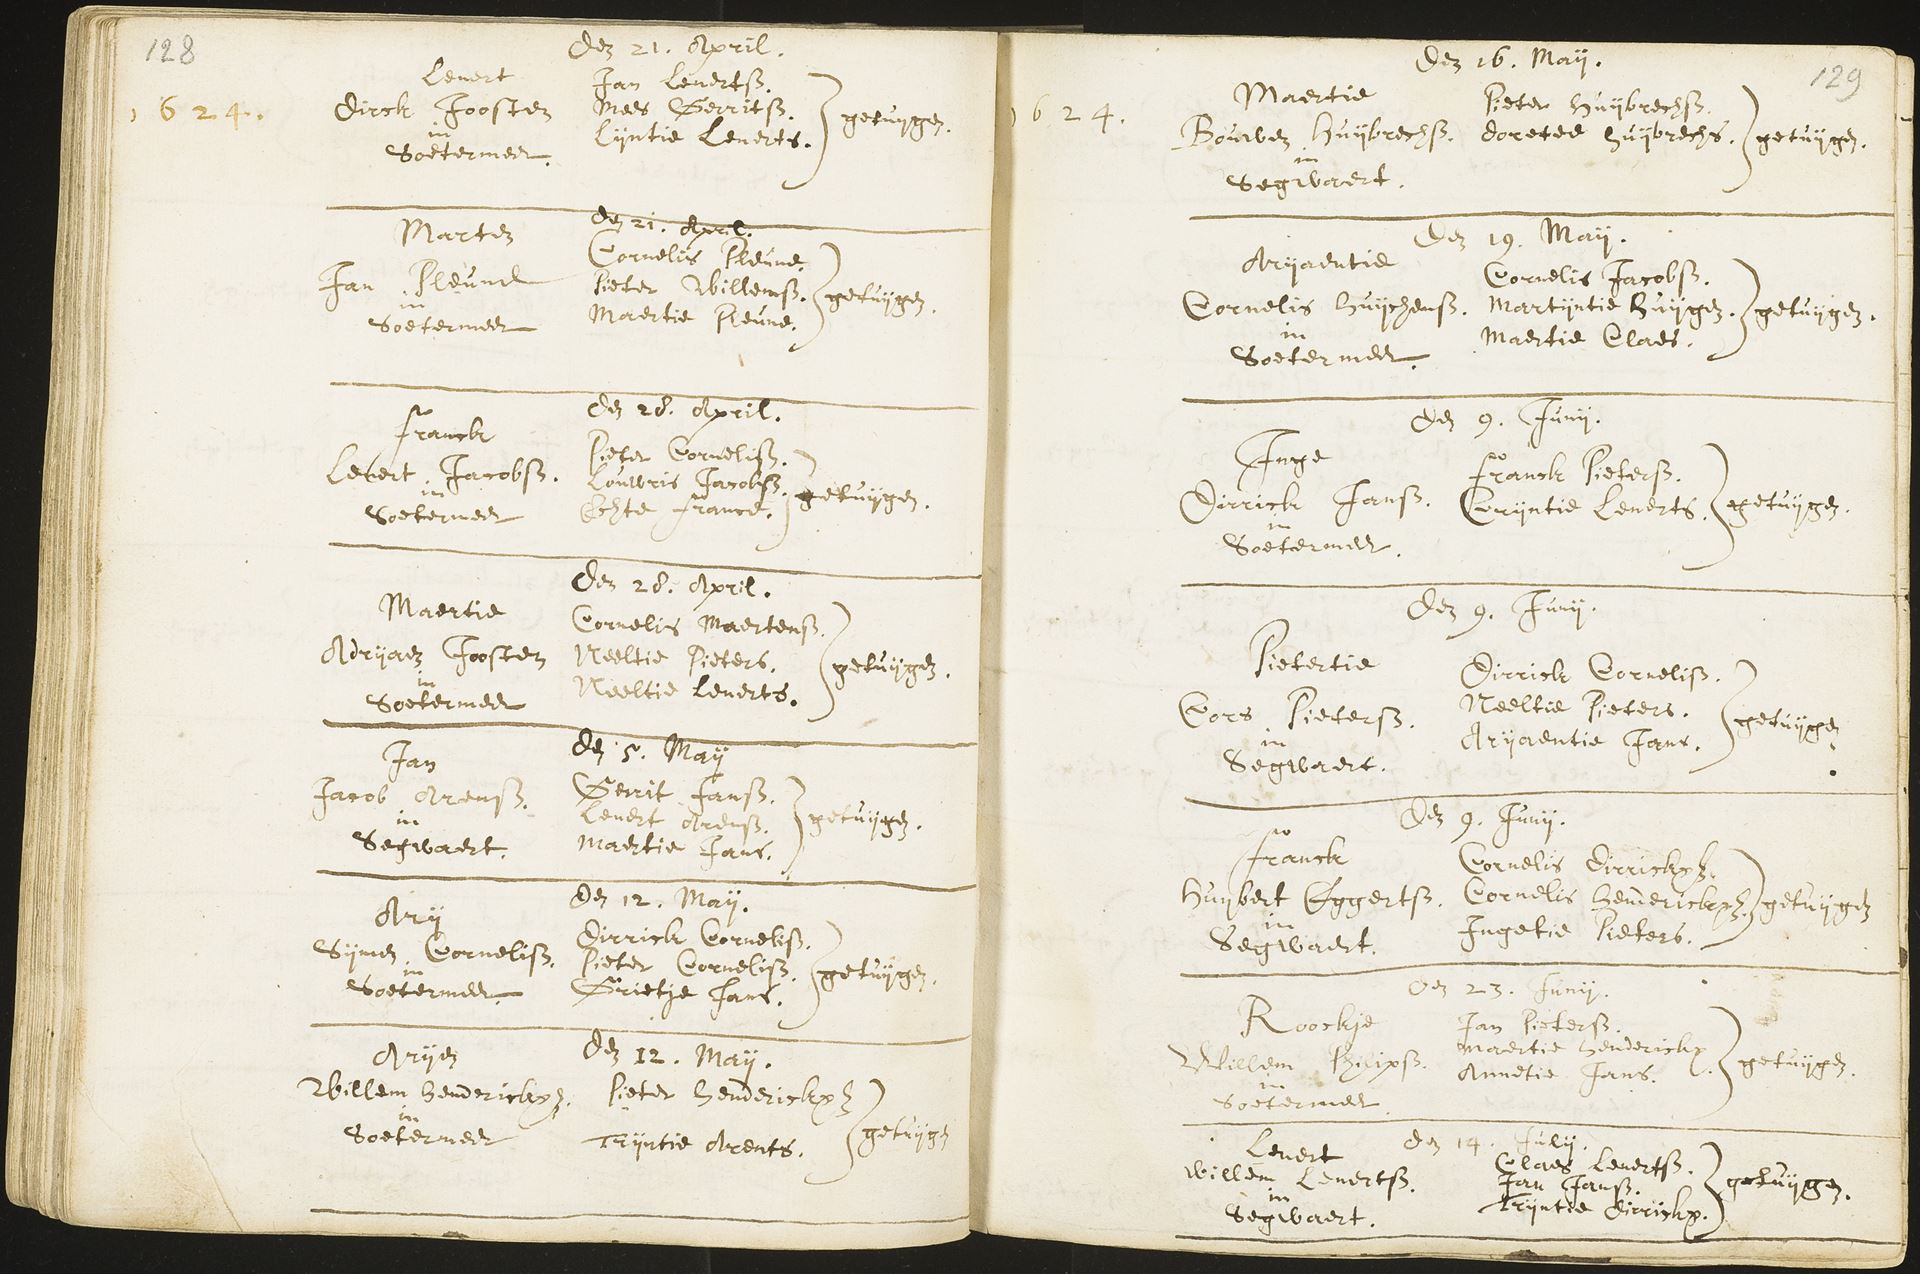 128
1624.
Den 21. April.
Lenert
Dirck Joosten
in
Soetermeer.
Jan Lenertsz.
Mees Gerritsz.
Lijntie Lenerts.
getuijgen.
Den 21. April.
Marten
Jan Pleune
in
Soetermeer
Cornelis Pleune.
Pieter Willemsz.
Maertie Pleune.
getuijgen.
Den 28. April.
Franck
Lenert Jacobsz.
in
Soetermeer
Pieter Cornelisz.
Louwris Jacobsz.
Echte France.
getuijgen.
Den 28. April.
Maertie
Adrijaen Joosten
in
Soetermeer
Cornelis Maertensz.
Neeltie Pieters.
Neeltie Lenerts.
getuijgen.
Den 5. May
Jan
Jacob Arensz.
in
Segwaert.
Gerrit Jansz.
Lenert Arensz.
Maertie Jans.
getuijgen.
Den 12. May.
Ary
Sijmen Cornelisz.
in
Soetermeer
Dirrick Cornelisz.
Pieter Cornelisz.
Grietje Jans.
getuijgen.
Den 12. May.
Aryen
Willem Henderickxz.
in
Soetermeer
Pieter Henderickxz
Trijntie Arents.
getuijgen
129
1624.
Den 16. Maij.
Maertie
Bouwen Huijbrechsz.
in
Segwaert.
Pieter Huijbrechsz.
Doretee Huijbrechs.
getuijgen.
Den 19. Maij.
Arijaentie
Cornelis Huijchensz.
in
Soetermeer.
Cornelis Jacobsz.
Martijntie Huijgen.
Maertie Claes.
getuijgen.
Den 9. Junij.
Inge
Dirrick Jansz.
in
Soetermeer.
Franck Pietersz.
Crijntie Lenerts.
getuijgen.
Den 9. Junij.
Pietertie
Cors Pietersz.
in
Segwaert.
Dirrick Cornelisz.
Neeltie Pieters.
Arijaentie Jans.
getuijgen
Den 9. Junij.
Franck
Huijbert Eggertsz.
in
Segwaert.
Cornelis Dirrickxz.
Cornelis Henderickxz.
Ingetie Pieters.
getuijgen
Den 23. Junij.
Roockje
Willem Philipsz.
in
Soetermeer
Jan Pietersz.
Maertie Henderickx.
Annetie Jans.
getuijgen.
Den 14. Julij.
Lenert
Willem Lenertsz.
in
Segwaert.
Claes Lenertsz.
Jan Jansz.
Trijntie Dirrickx.
getuijgen.